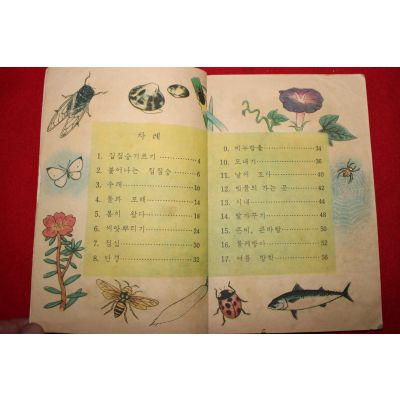 차 례
1. 집짐승기르기 4
2. 불어나는 집짐승 6
3. 수레 10
4. 돌과 모래 14
5. 봄이 왔다 18
6. 씨앗뿌리기 24
7. 점심 30
8. 안경 32
9. 비누방울 34
10. 모내기 36
11. 날씨 조사 38
12. 빗물의 가는 곳 40
13. 시내 44
14. 발가꾸기 48
15. 큰비, 큰바람 50
16. 물레방아 52
17. 여름 방학 56